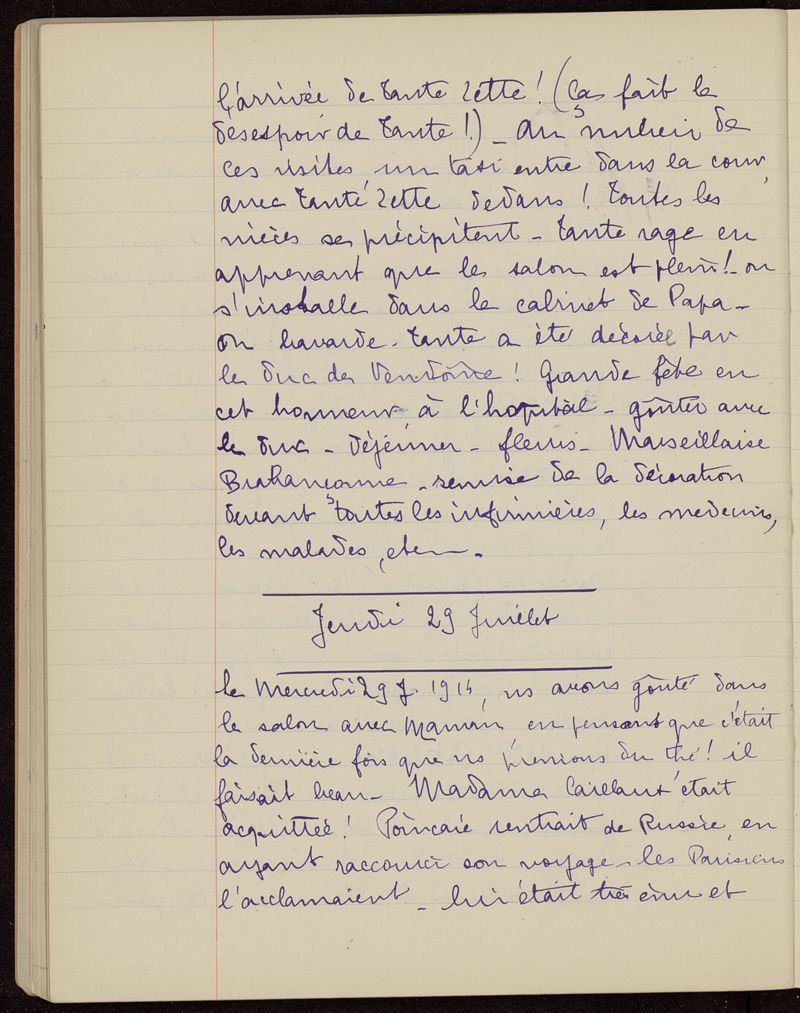 l'arrivée de tante Zette ! (Ça fait le
desespoir de tante !) _ Au milieu de
ces visites un taxi entre dans la cour
avec tante Zette dedans ! Toutes les
nièces se précipitent _ tante rage en
apprenant que le salon est plein ! _ on
s'installe dans le cabinet de Papa _
on bavarde. tante a été décorée par
le duc de Vendôme ! Grande fête en
cet honneur, à l'hopital _ goûter avec
le duc _ déjeuner _ fleurs _ Marseillaise
Brabançonne _ remise de la décoration
devant toutes les infirmières, les medecins,
les malades, etc _.
Jeudi 29 Juillet
le Mercredi 29 J. 1914, ns avons goûté dans
le salon avec Maman en pensant que c'était
la dernière fois que ns prenions du thé ! il
faisait beau _ Madame Caillaux était
acquittée ! Poincaré rentrait de Russie, en
ayant raccourci son voyage _ les Parisiens
l'acclamaient _ lui était très ému et